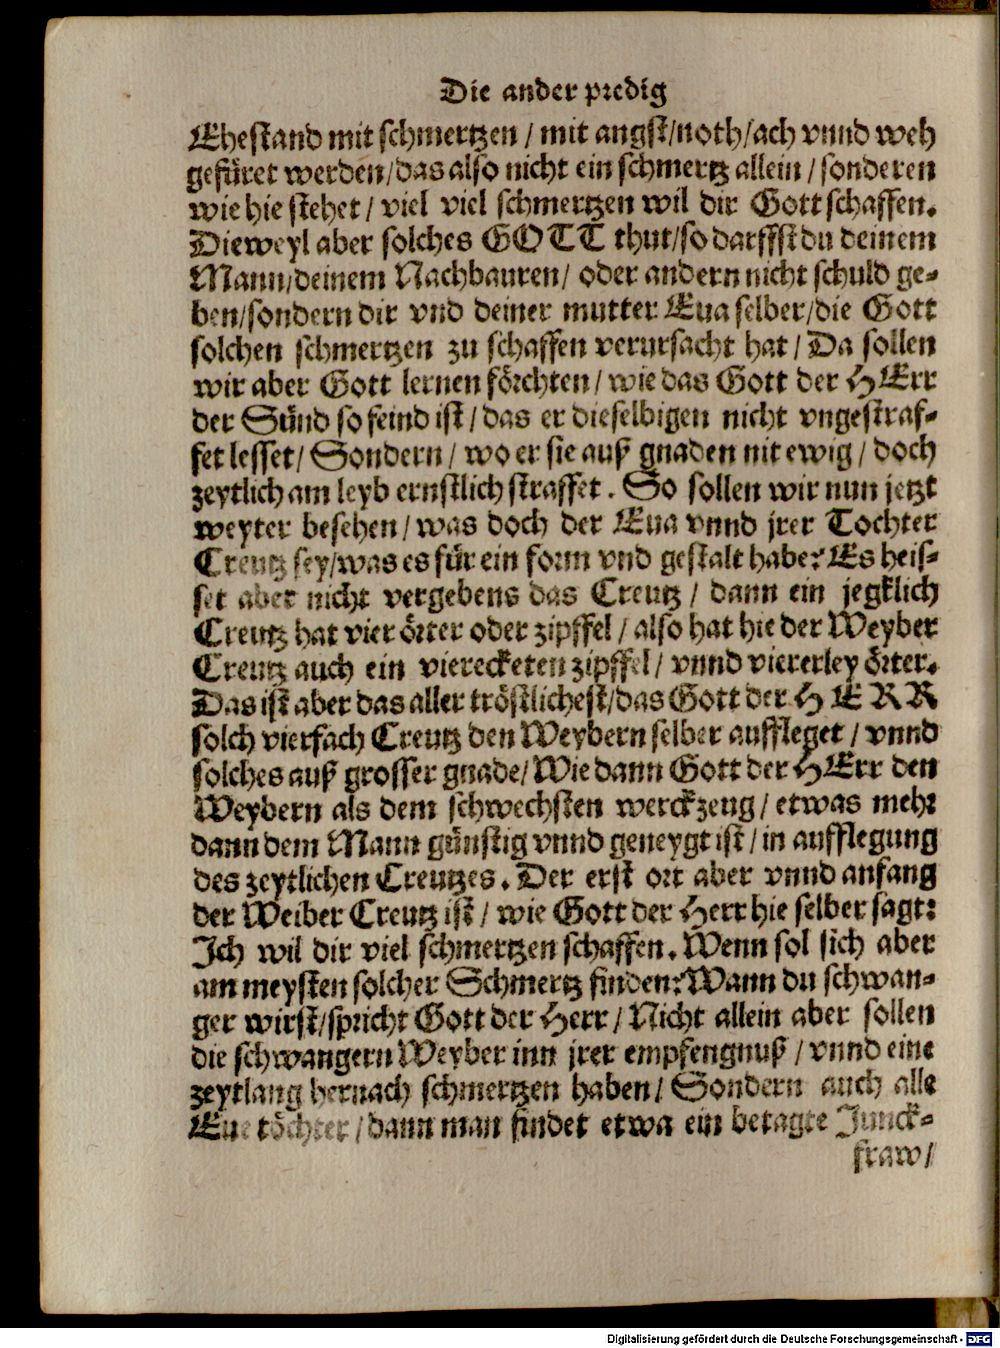 Die ander predig
Ehestand mit schmertzen / mit angst/noth/ach vnnd weh
gefüret werden/das also nicht ein schmertz allein / sonderen
wie hie stehet / viel viel schmertzen wil dir Gott schaffen.
Dieweyl aber solches GOTT thut/so darffst du deinem
Mann/deinem Nachbauren/ oder andern nicht schuld ge-
ben/sondern dir vnd deiner mutter Eua selber/die Gott
solchen schmertzen zu schaffen verursacht hat / Da sollen
wir aber Gott lernen förchten / wie das Gott der HErr
der Sünd so feind ist / das er dieselbigen nicht vngestraf-
fet lesset/ Sondern / wo er sie auß gnaden nit ewig / doch
zeytlich am leyb ernstlich straffet. So sollen wir nun jetzt
weyter besehen / was doch der Eua vnnd jrer Tochter
Creutz sey/was es für ein form vnd gestalt habe? Es heis-
set aber nicht vergebens das Creutz / dann ein jegklich
Creutz hat vier örter oder zipffel / also hat hie der Weyber
Creutz auch ein viereckoten zipffel / vnnd viererley örter.
Das ist aber das aller tröstlichest/das Gott der HERR
solch vierfach Creutz den Weybern selber auffleget / vnnd
solches auß grosser gnade/ Wie dann Gott der HErr den
Weybern als dem schwechsten werckzeug / etwas mehr
dann dem Mann günstig vnnd geneygt ist / in aufflegung
des zeytlichen Creutzes. Der erst ort aber vnnd anfang
der Weiber Creutz ist / wie Gott der Herr hie selber sagt:
Ich wil dir viel schmertzen schaffen. Wenn sol sich aber
am meysten solcher Schmertz finden? Wann du schwan-
ger wirst/spricht Gott der Herr / Nicht allein aber sollen
die schwangern Weyber inn jrer empfengnuß / vnnd eine
zeytlang hernach schmertzen haben/ Sondern auch alle
Eue töchter / dann man findet etwa ein betagte Junck-
fraw/
Digitalisierung gefördert durch die Deutsche Forschungsgemeinschaft - DFG